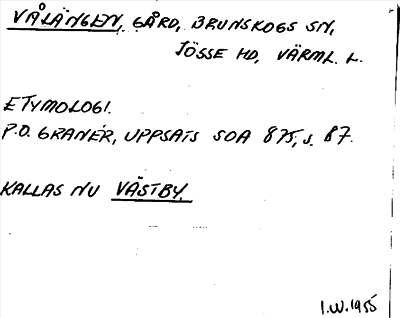 VÅLÄNGEN, GÅRD, BRUNSKOGS SN,
JÖSSE HD, VÄRML. L.
ETYMOLOGI.
P.O. GRANÉR, UPPSATS SOA 875, S. 87.
KALLAS NU VÄSTBY.
I.W. 1955